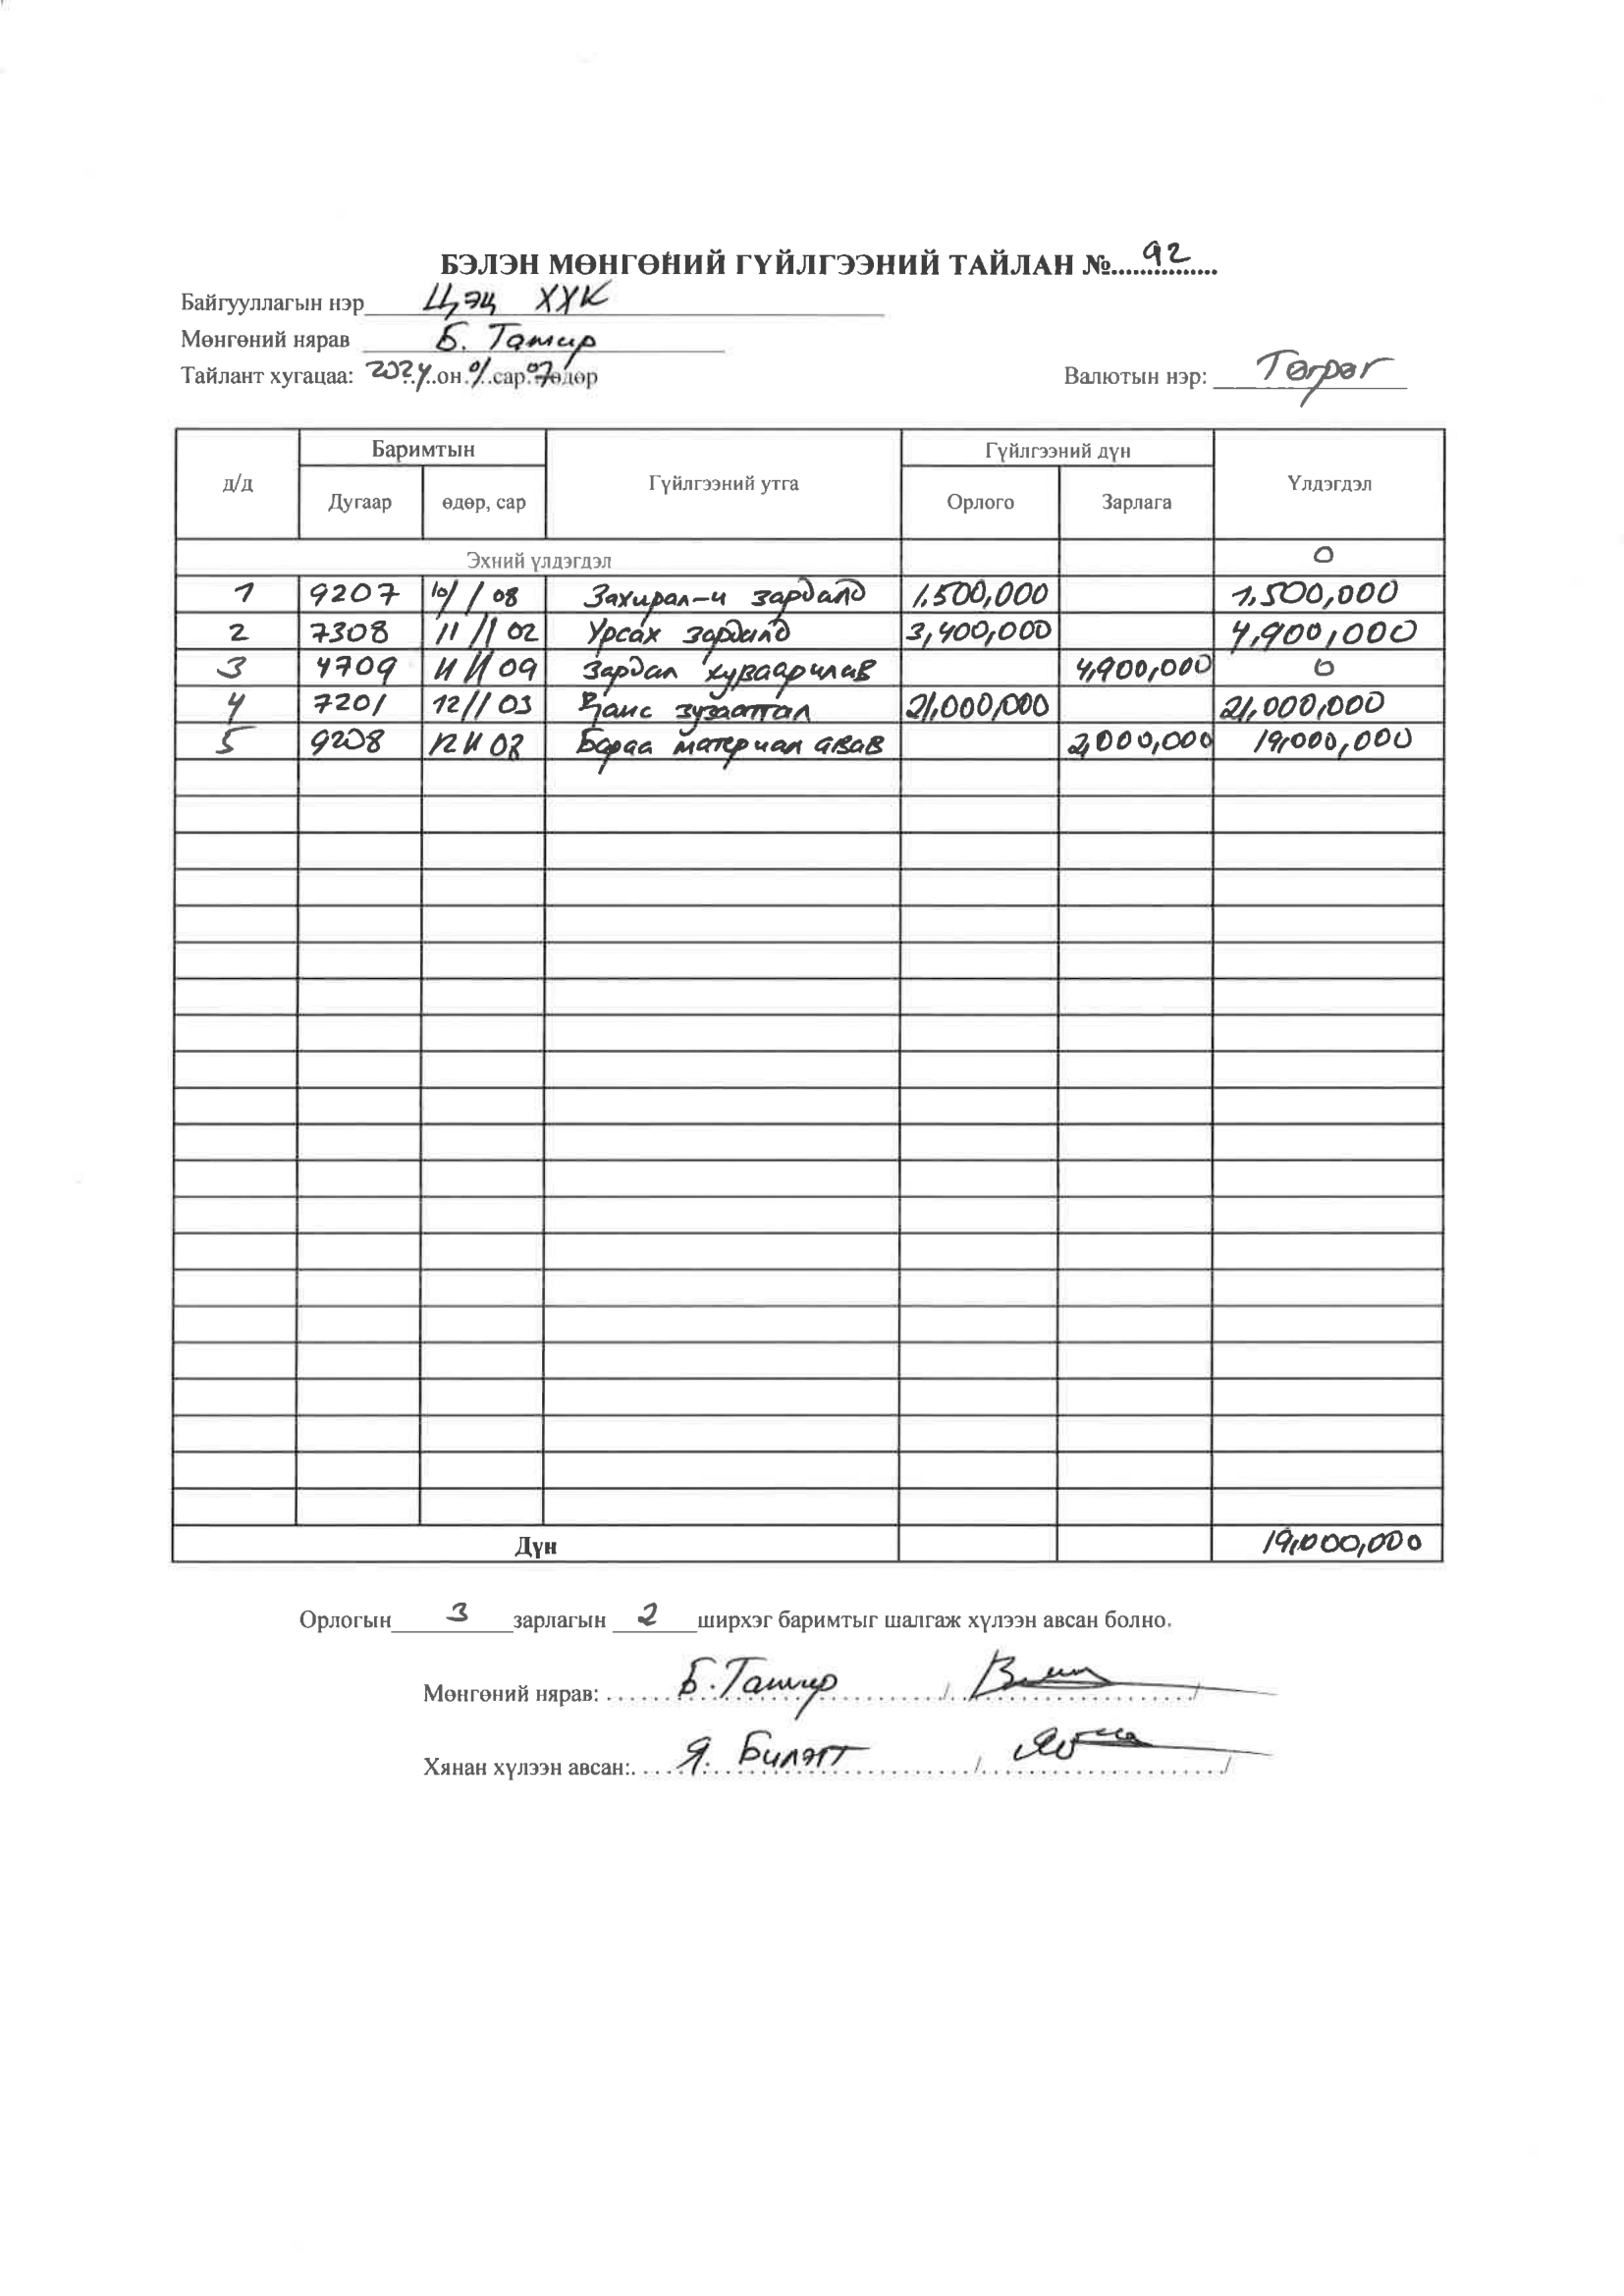 БЭЛЭН МӨНГӨНИЙ ГҮЙЛГЭЭНИЙ ТАЙЛАН №...92...
Байгууллагын нэр Цэц ХХК
Мөнгөний нярав Б. Тамир
Тайлант хугацаа: 2024 он 01 сар 07 өдөр Валютын нэр: Төгрөг
д/д Баримтын Гүйлгээний утга Гүйлгээний дүн Үлдэгдэл
Дугаар өдөр, сар Орлого Зарлага
Эхний үлдэгдэл 0
1 9207 10/ / 08 Захирал-и зардалд 1,500,000 1,500,000
2 7308 11 // 02 Урсах зардалд 3,400,000 4,900,000
3 4709 11 // 09 Зардал хуваарилав 4,900,000 0
4 7201 12 // 03 зузаатгал 21,000,000 21,000,000
5 9208 12 // 08 Бараа материал авав 2,000,000 19,000,000
Дүн 19,000,000
Орлогын 3 зарлагын 2 ширхэг баримтыг шалгаж хүлээн авсан болно.
Мөнгөний нярав: Б. Тамир / /
Хянан хүлээн авсан: Я. Билэгт / /